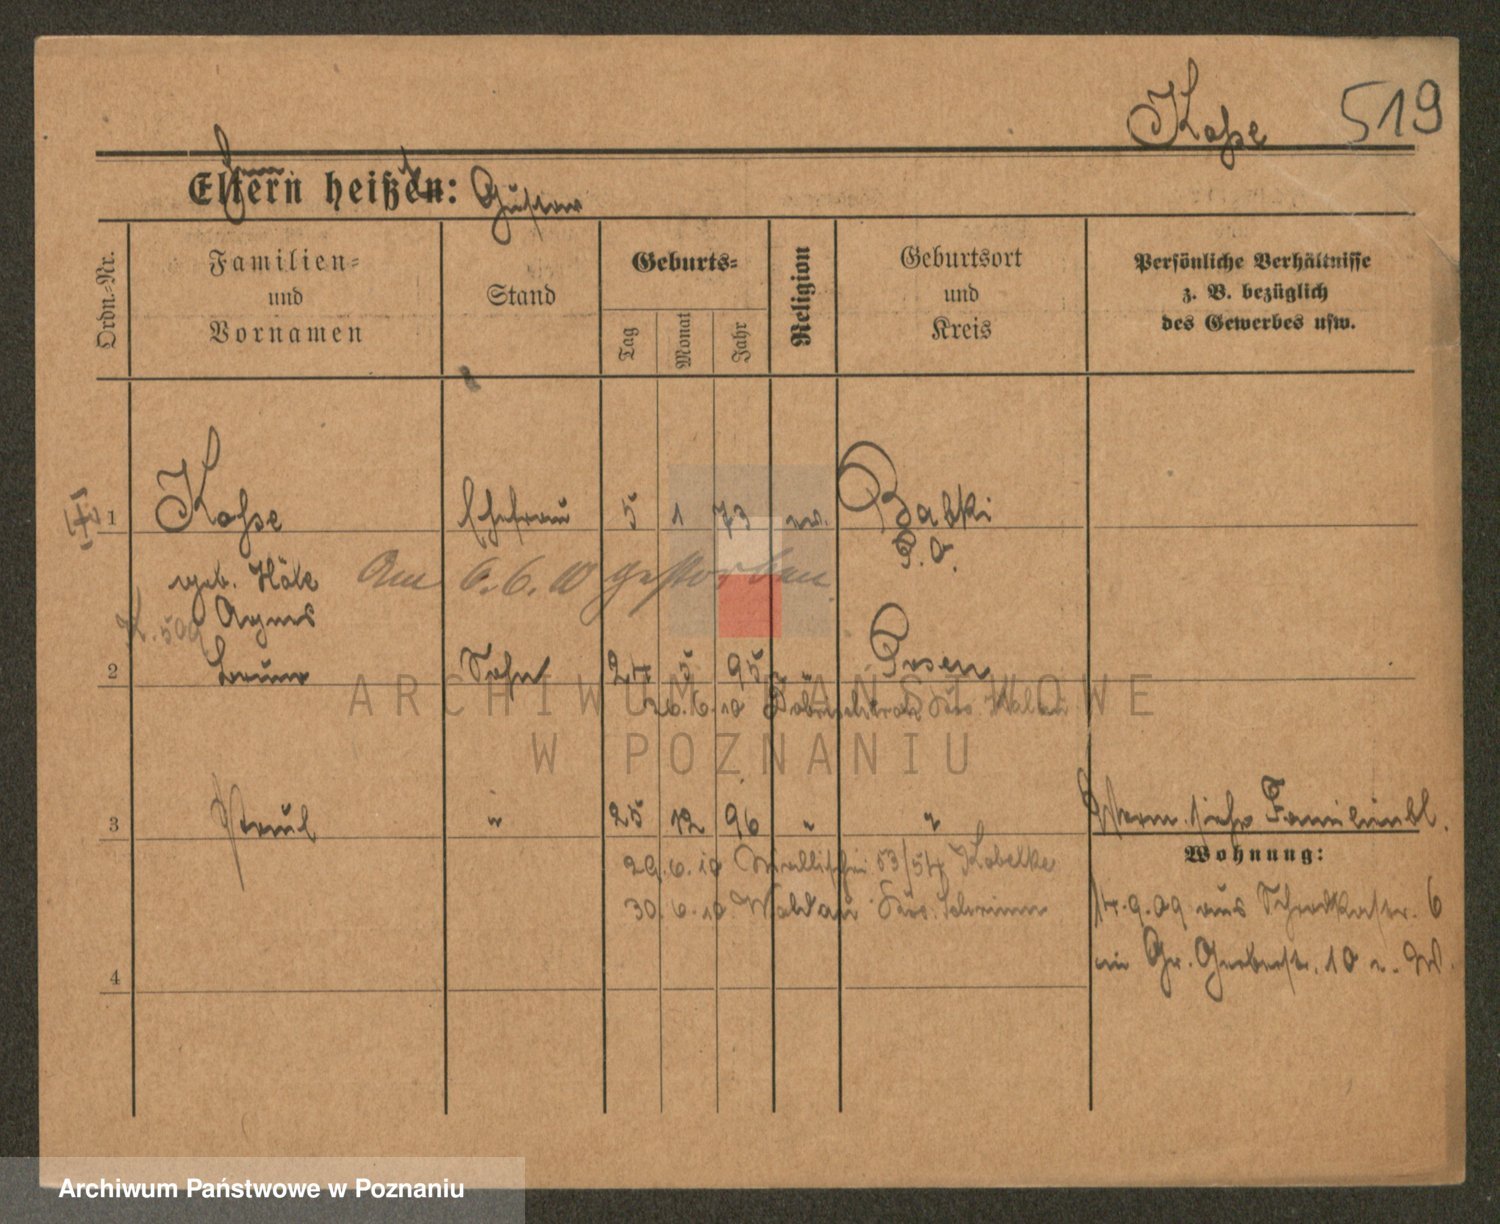 Kosse 519
Eltern heißen: Gustav
Ordn.-Nr.
Familien-
und
Vornamen
Stand
Geburts-
Tag
Monat
Jahr
Religion
Geburtsort
und
Kreis
Persönliche Verhältnisse
z. B. bezüglich
des Gewerbes usw.
1 Kosse Ehefrau 5 1 73 ev. Babki
P. O.
geb. Am 6. 6. 10 gestorben.
Agnes
2 Bruno Sohn 24 5 95 Posen
26.6.10
ARCHIWUM PAŃSTWOWE
W POZNANIU
3 Paul " 25 12 96 " " siehe Familienbl.
Wohnung:
29.6.10 Wallischei 53/54
30.6.10 Waldau Schrimm
14.9.09 aus Schrodkastr. 6
in Gr. Gerberstr. 10 n. W.
4
Archiwum Państwowe w Poznaniu